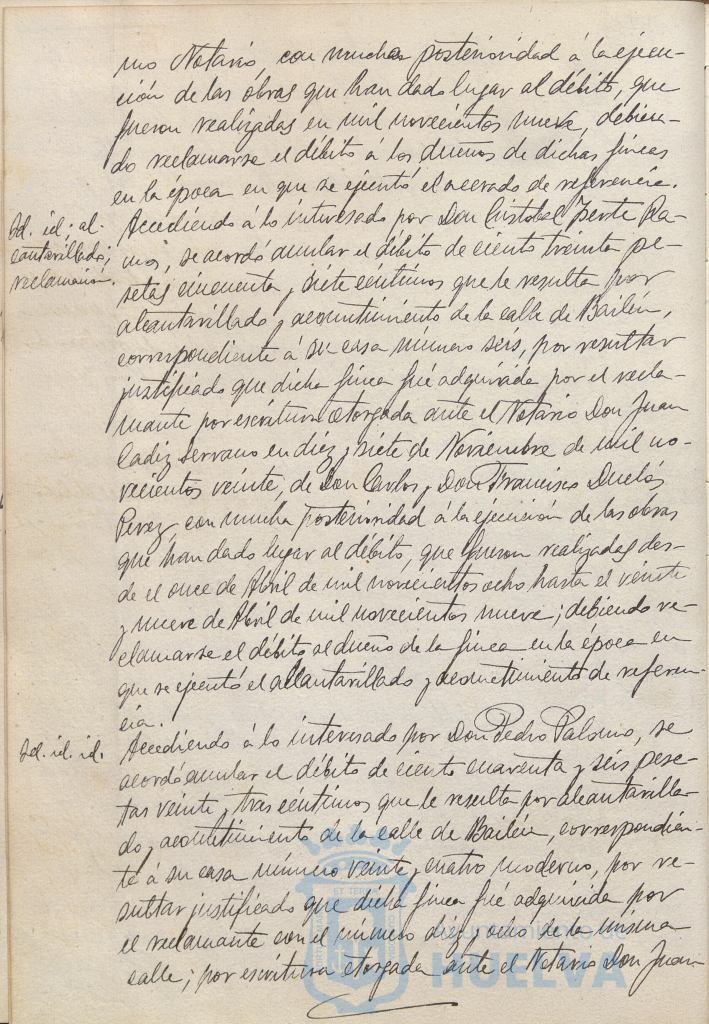 mo Notario, con mucha posterioridad á la ejecu-
ción de las obras que han dado lugar al débito, que
fueron realizadas en mil novecientos nueve, debien-
do reclamarse el débito á los dueños de dichas fincas
en la época en que se ejecutó el acerado de referencia.
Id. id; al-
cantarillado;
reclamación.
Accediendo á lo interesado por Don Cristobal
mos, se acordó anular el débito de ciento treinta pe-
setas cincuenta y siete céntimos que le resulta por
alcantarillado y acometimiento de la calle de Bailén,
correspondiente á su casa número seis, por resultar
justificado que dicha finca fué adquirida por el recla-
mante por escritura otorgada ante el Notario Don Juan
Cadiz Serrano en diez y siete de Noviembre de mil no-
vecientos veinte, de Don Carlos y Don Francisco Duclós
Perez, con mucha posterioridad á la ejecución de las obras
que han dado lugar al débito, que fueron realizadas des-
de el once de Abril de mil novecientos ocho hasta el veinte
y nueve de Abril de mil novecientos nueve; debiendo re-
clamarse el débito al dueño de la finca en la época en
que se ejecutó el alcantarillado y acometimiento de referen-
cia.
Id. id. id.
Accediendo á lo interesado por Don Pedro Palomo, se
acordó anular el débito de ciento cuarenta y seis pese-
tas veinte y tres céntimos que le resulta por alcantarilla-
do y acometimiento de la calle de Bailén, correspondien-
te á su casa número veinte y cuatro moderno, por re-
sultar justificado que dicha finca fué adquirida por
el reclamante con el número diez y ocho de la misma
calle; por escritura otorgada ante el Notario Don Juan
HUELVA